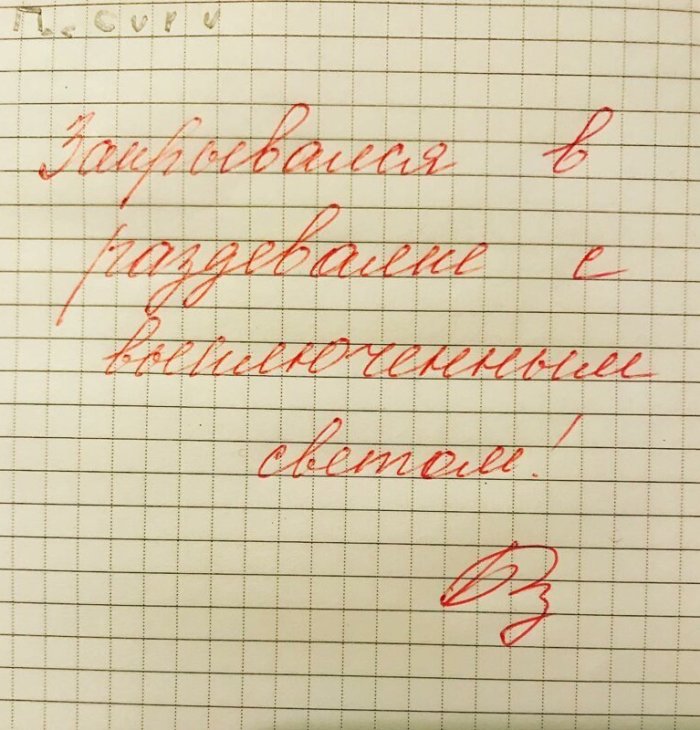 Закрывался в
раздевалке с
выключенным
светом!